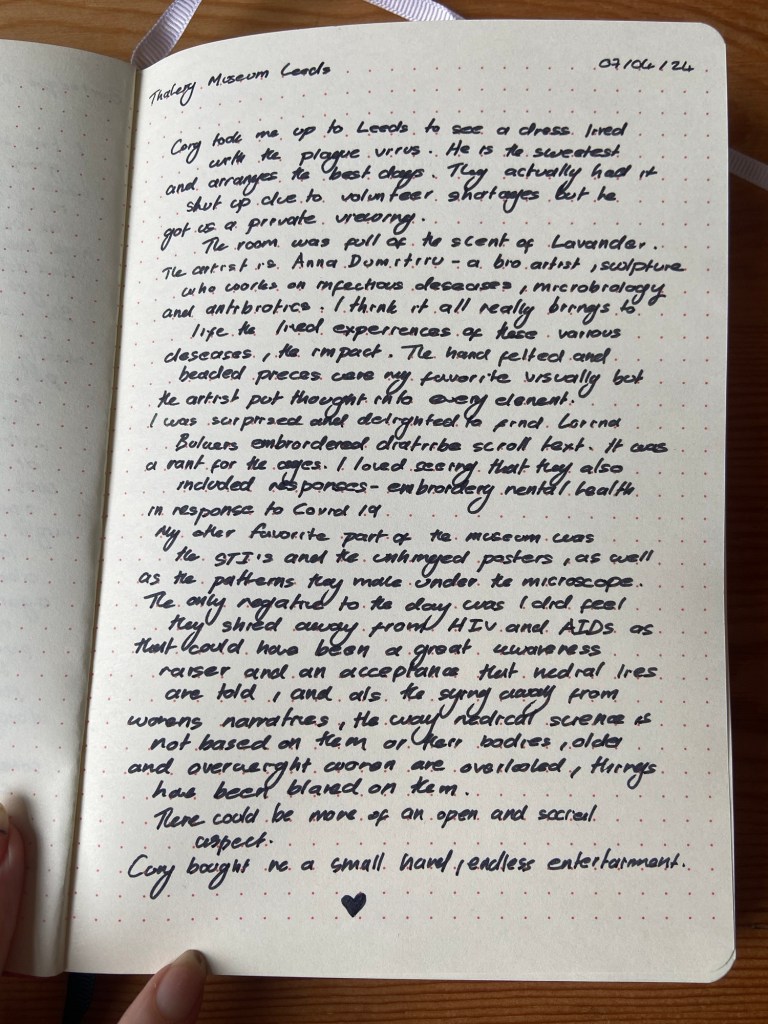 Thalery Museum Leeds
07/04/24
Cory took me up to Leeds to see a dress lined
with the plague virus. He is the sweetest
and arranges the best days. They actually had it
shut up due to volunteer shatages but he
got us a private viewing.
The room was full of the scent of Lavander.
The artist is Anna Dumitriu - a bio artist, sculpture
who works on infectious deseases, microbiology
and antibiotics. I think it all really brings to
life the lived experiences of these various
deseases, the impact. The hand felted and
beaded pieces were my favorite visually but
the artist put thought into every element.
I was surprised and delighted to find Lorina
Bulwers embroidered diatribe scroll text. It was
a rant for the ages. I loved seeing that they also
included responses - embroidery mental health
in response to Covid 19.
My other favorite part of the museum was
the STI's and the unhinged posters, as well
as the patterns they make under the microscope.
The only negative to the day was I did feel
they shied away from HIV and AIDs as
that could have been a great awareness
raiser and an acceptance that medical lies
are told, and als the sying away from
womens narratives, the way medical science is
not based on them or their bodies, older
and overweight women are overlooked, things
have been blamed on them.
There could be more of an open and social
aspect.
Cory bought me a small hand, endless entertainment.